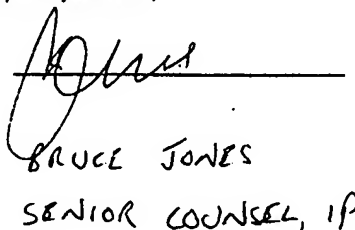 BRUCE JONES
SENIOR COUNSEL, IP